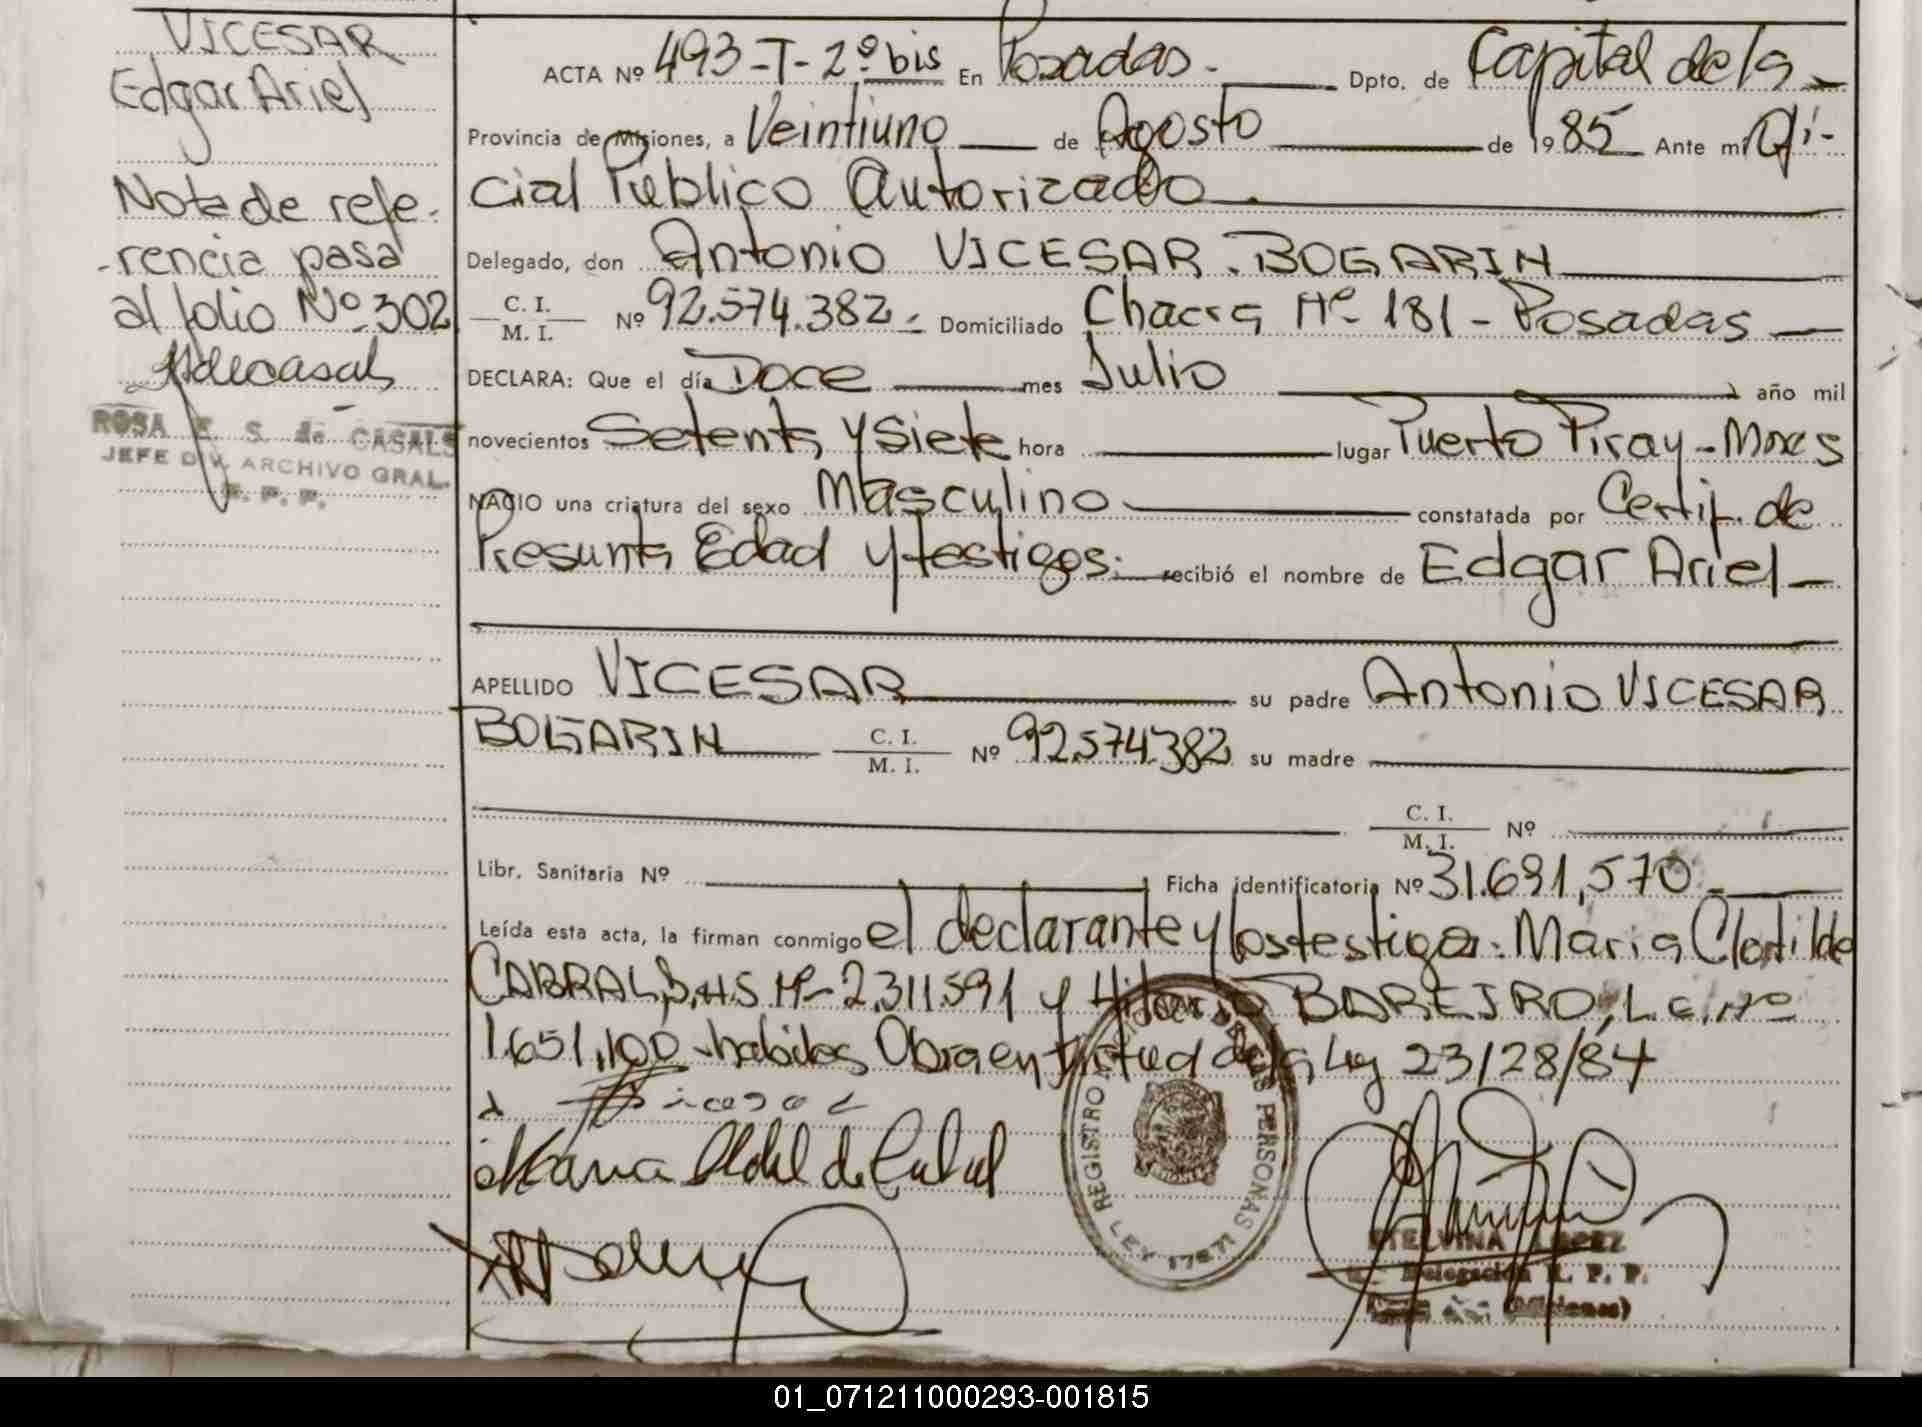 VICESAR
Edgar Ariel
Nota de refe-
rencia pasa
al folio Nº 302
ROSA E. S. de CASALS
JEFE DIV. ARCHIVO GRAL.
R. P. P.
ACTA Nº 493-T-2º bis En Posadas.- Dpto. de Capital de la
Provincia de Misiones, a Veintiuno de Agosto de 1985 Ante mi Ofi-
cial Público Autorizado.
Delegado, don Antonio VICESAR BOGARIN
C. I.
M. I. Nº 92.574.382.- Domiciliado Chacra Nº 181 - Posadas
DECLARA: Que el día Doce mes Julio año mil
novecientos Setenta y Siete hora lugar Puerto Piray-Mnes
NACIO una criatura del sexo Masculino constatada por Certif. de
Presunta Edad y testigos. recibió el nombre de Edgar Ariel
APELLIDO VICESAR su padre Antonio VICESAR
BOGARIN C. I.
M. I. Nº 92.574.382 su madre
C. I.
M. I. Nº
Libr. Sanitaria Nº Ficha identificatoria Nº 31.691,570
Leída esta acta, la firman conmigo el declarante y los testigos: Maria Clotilde
CABRAL, Nº 2.311.591 y Hilario BAREIRO, L.E. Nº
1.651,100 habiles Obra en virtud de la Ley 23/28/84
REGISTRO PERSONAS
LEY 17671
ETELVINA LOPEZ
Delegación R. P. P.
(Misiones)
01_071211000293-001815